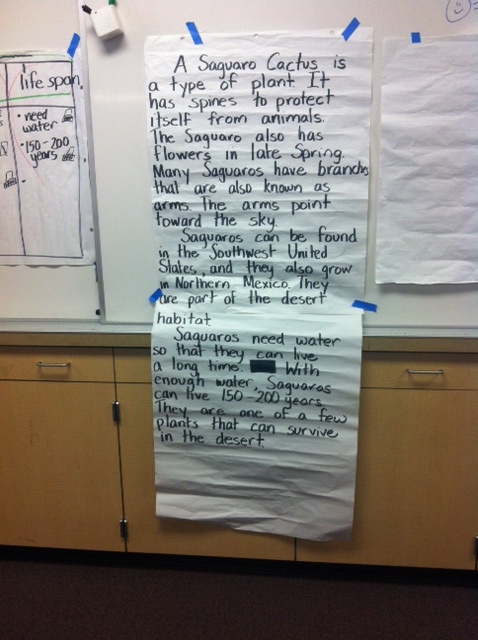 life span
• need
water
• 150-200
years
A Saguaro Cactus is
a type of plant. It
has spines to protect
itself from animals.
The Saguaro also has
flowers in late Spring.
Many Saguaros have branches
that are also known as
arms. The arms point
toward the sky.
Saguaros can be found
in the Southwest United
States, and they also grow
in Northern Mexico. They
are part of the desert
habitat.
Saguaros need water
so that they can live
a long time. With
enough water, Saguaros
can live 150-200 years.
They are one of a few
plants that can survive
in the desert.